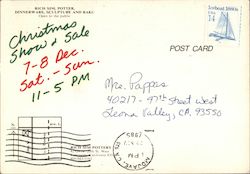 RICH SIM, POTTER,
DINNERWARE, SCULPTURE AND RAKU
Open to the public
Christmas
Show & Sale
7-8 Dec.
Sat. - Sun.
11-5 PM
Iceboat 1880s
USA
14
POST CARD
Mrs. Pappas
40217 - 97th Street West
Leona Valley, CA, 93550
RICH SIM POTTERY
MOJAVE, CA
1985